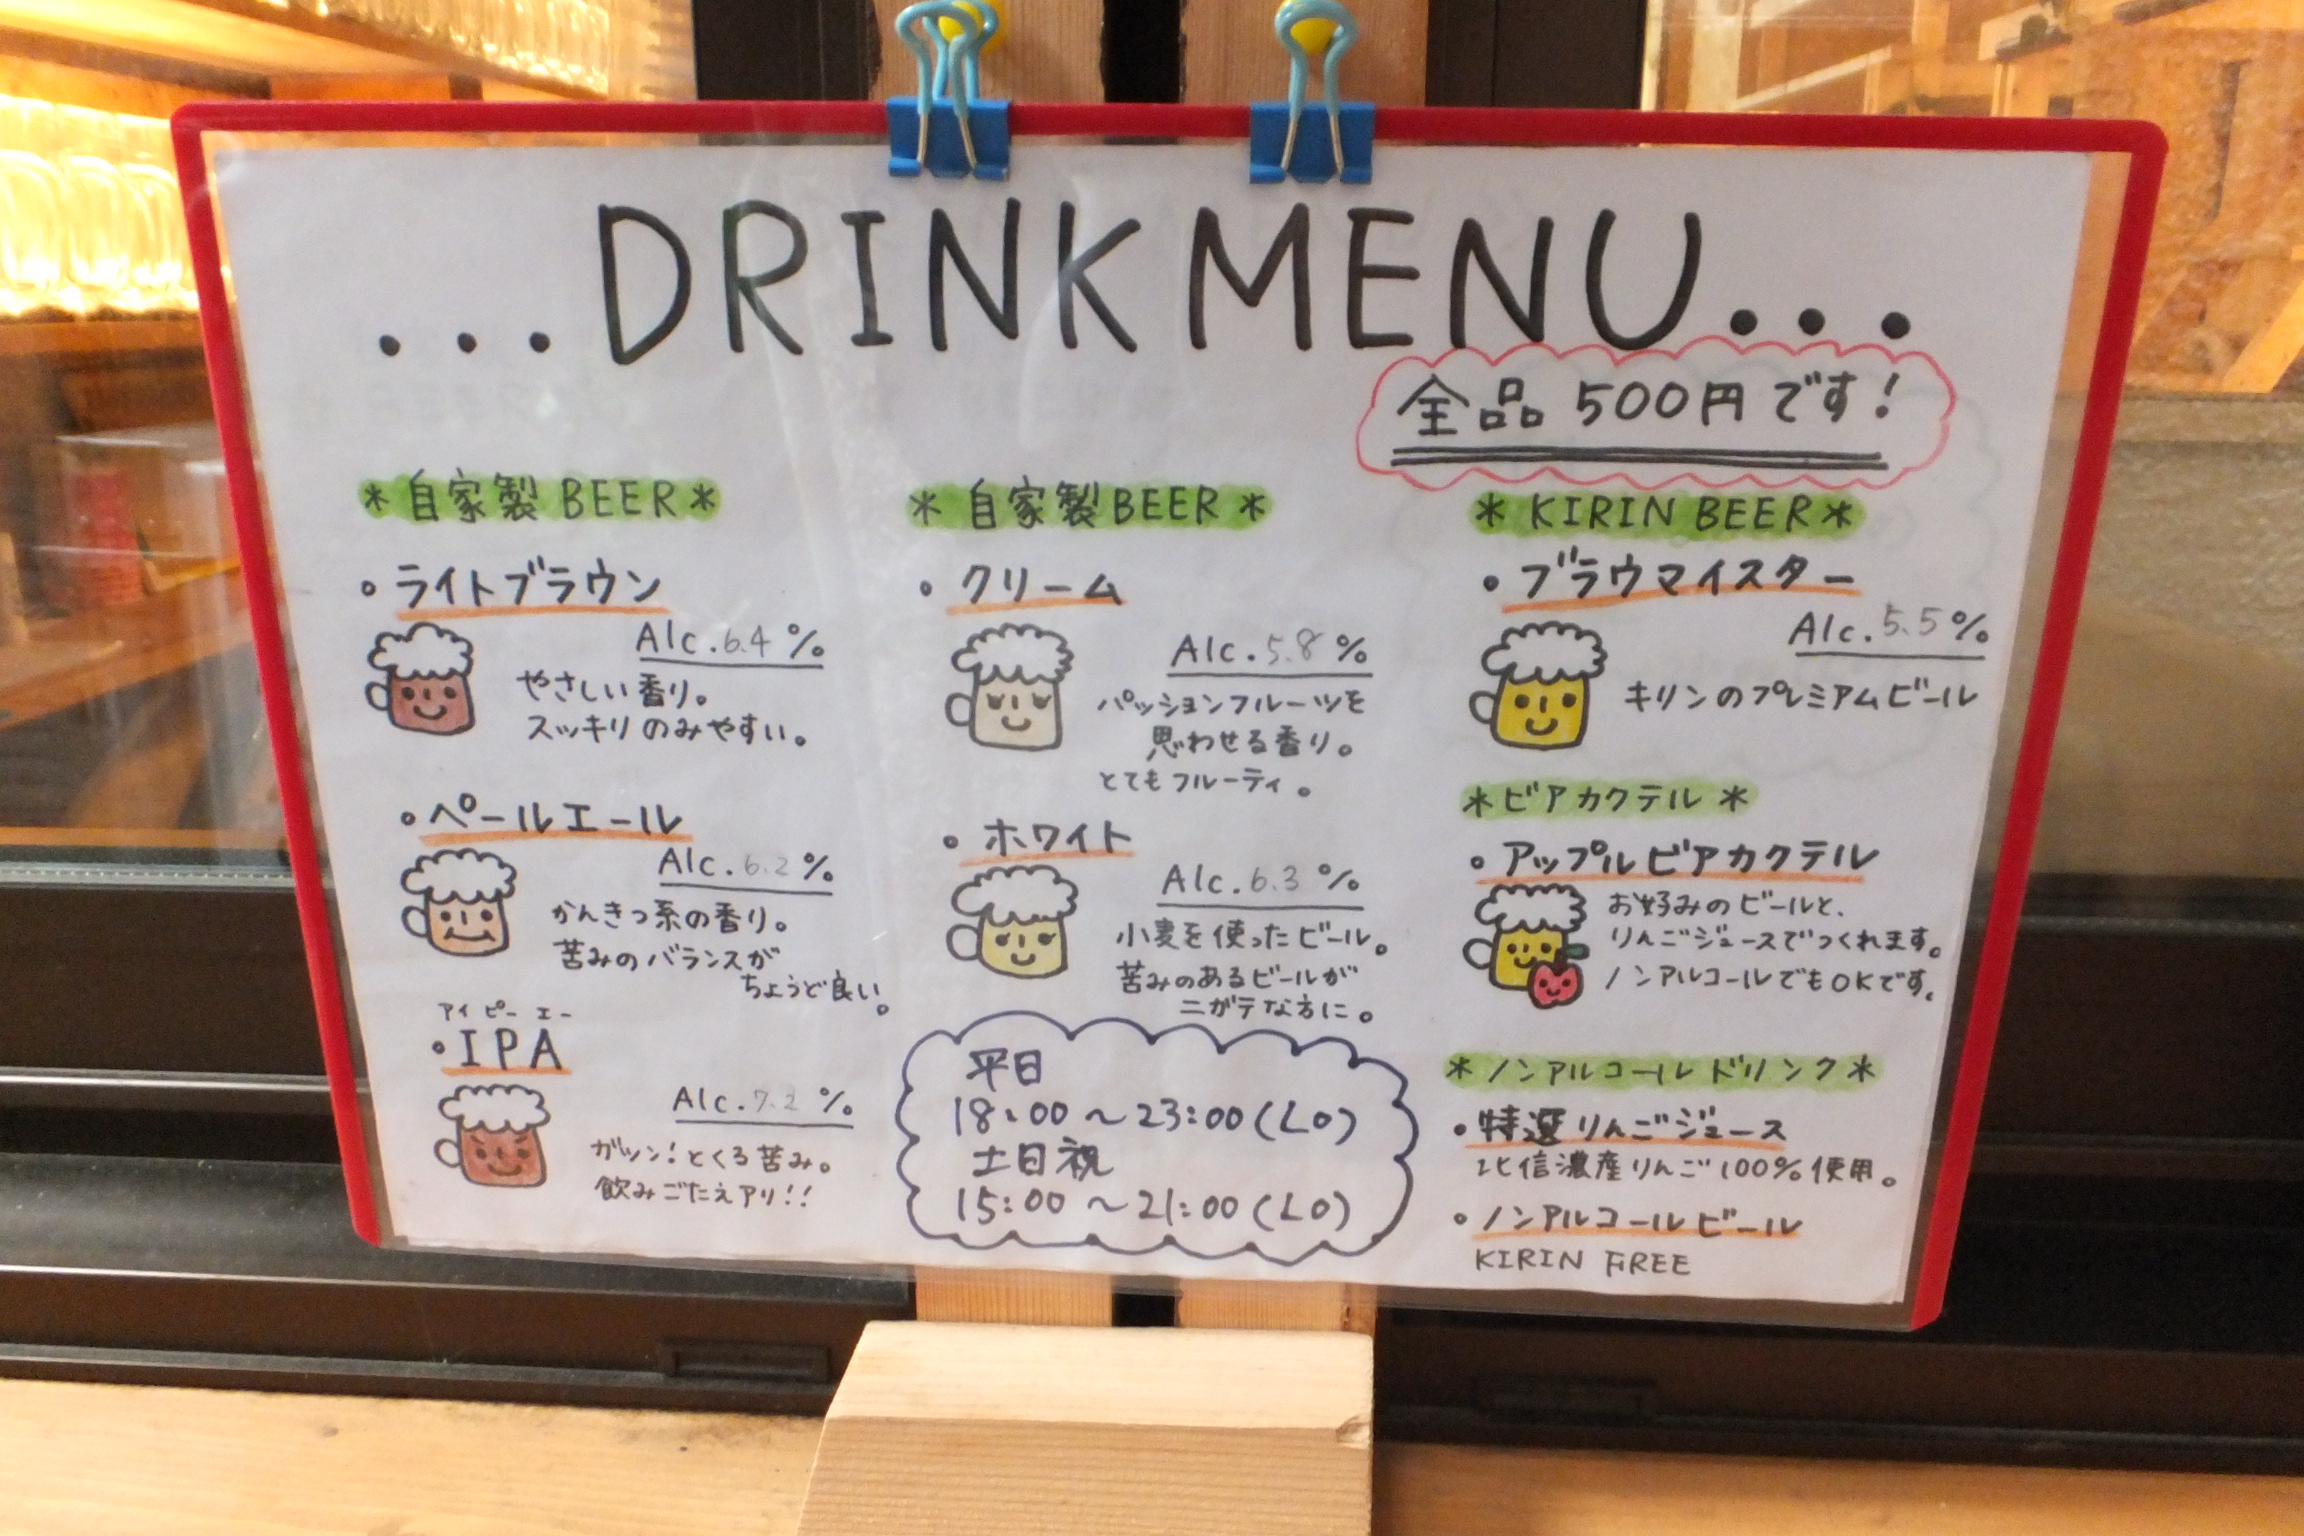 ...DRINK MENU...
全品500円です!
*自家製BEER*
・ライトブラウン
Alc.6.4%
やさしい香り。
スッキリのみやすい。
・ペールエール
Alc.6.2%
かんきつ系の香り。
苦みのバランスが
ちょうど良い。
アイピーエー
・IPA
Alc.7.2%
ガツン!とくる苦み。
飲みごたえアリ!!
*自家製BEER*
・クリーム
Alc.5.8%
パッションフルーツを
思わせる香り。
とてもフルーティ。
・ホワイト
Alc.6.3%
小麦を使ったビール。
苦みのあるビールが
ニガテな方に。
平日
18:00～23:00(LO)
土日祝
15:00～21:00(LO)
*KIRIN BEER*
・ブラウマイスター
Alc.5.5%
キリンのプレミアムビール
*ビアカクテル*
・アップルビアカクテル
お好みのビールと、
りんごジュースでつくれます。
ノンアルコールでもOKです。
*ノンアルコールドリンク*
・特選りんごジュース
北信濃産りんご100%使用。
・ノンアルコールビール
KIRIN FREE